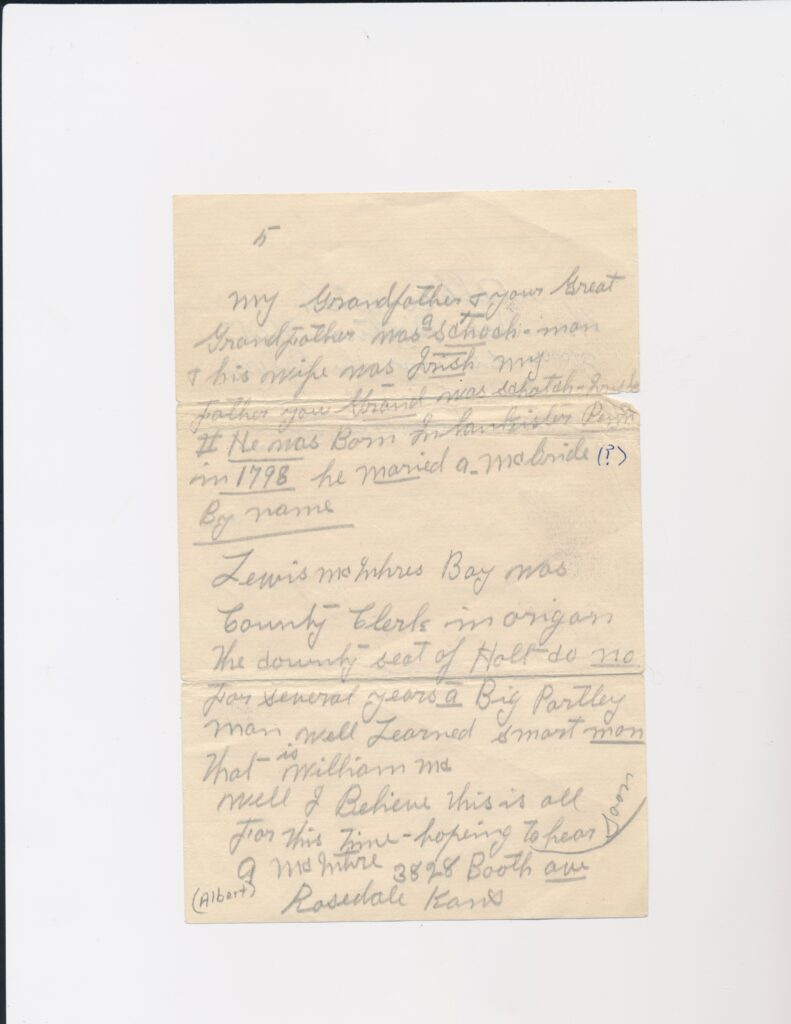 5
My Grandfather & your Great
Grandfather was a schoch-man
& his wife was Irish my
Father you Grand was schotch-Irish
II He was Born In Lankister Penn
in 1798 he maried a McBride (?)
By name
Lewis McIntires Boy was
County Clerk in origon
the county seat of Holt co Mo
For several years a Big Portley
man well Learned smart man
that is William Mc
Well I Believe this is all
For this Time - hoping to hear Soon
A McIntire 3828 Booth ave
(Albert)
Rosedale Kans